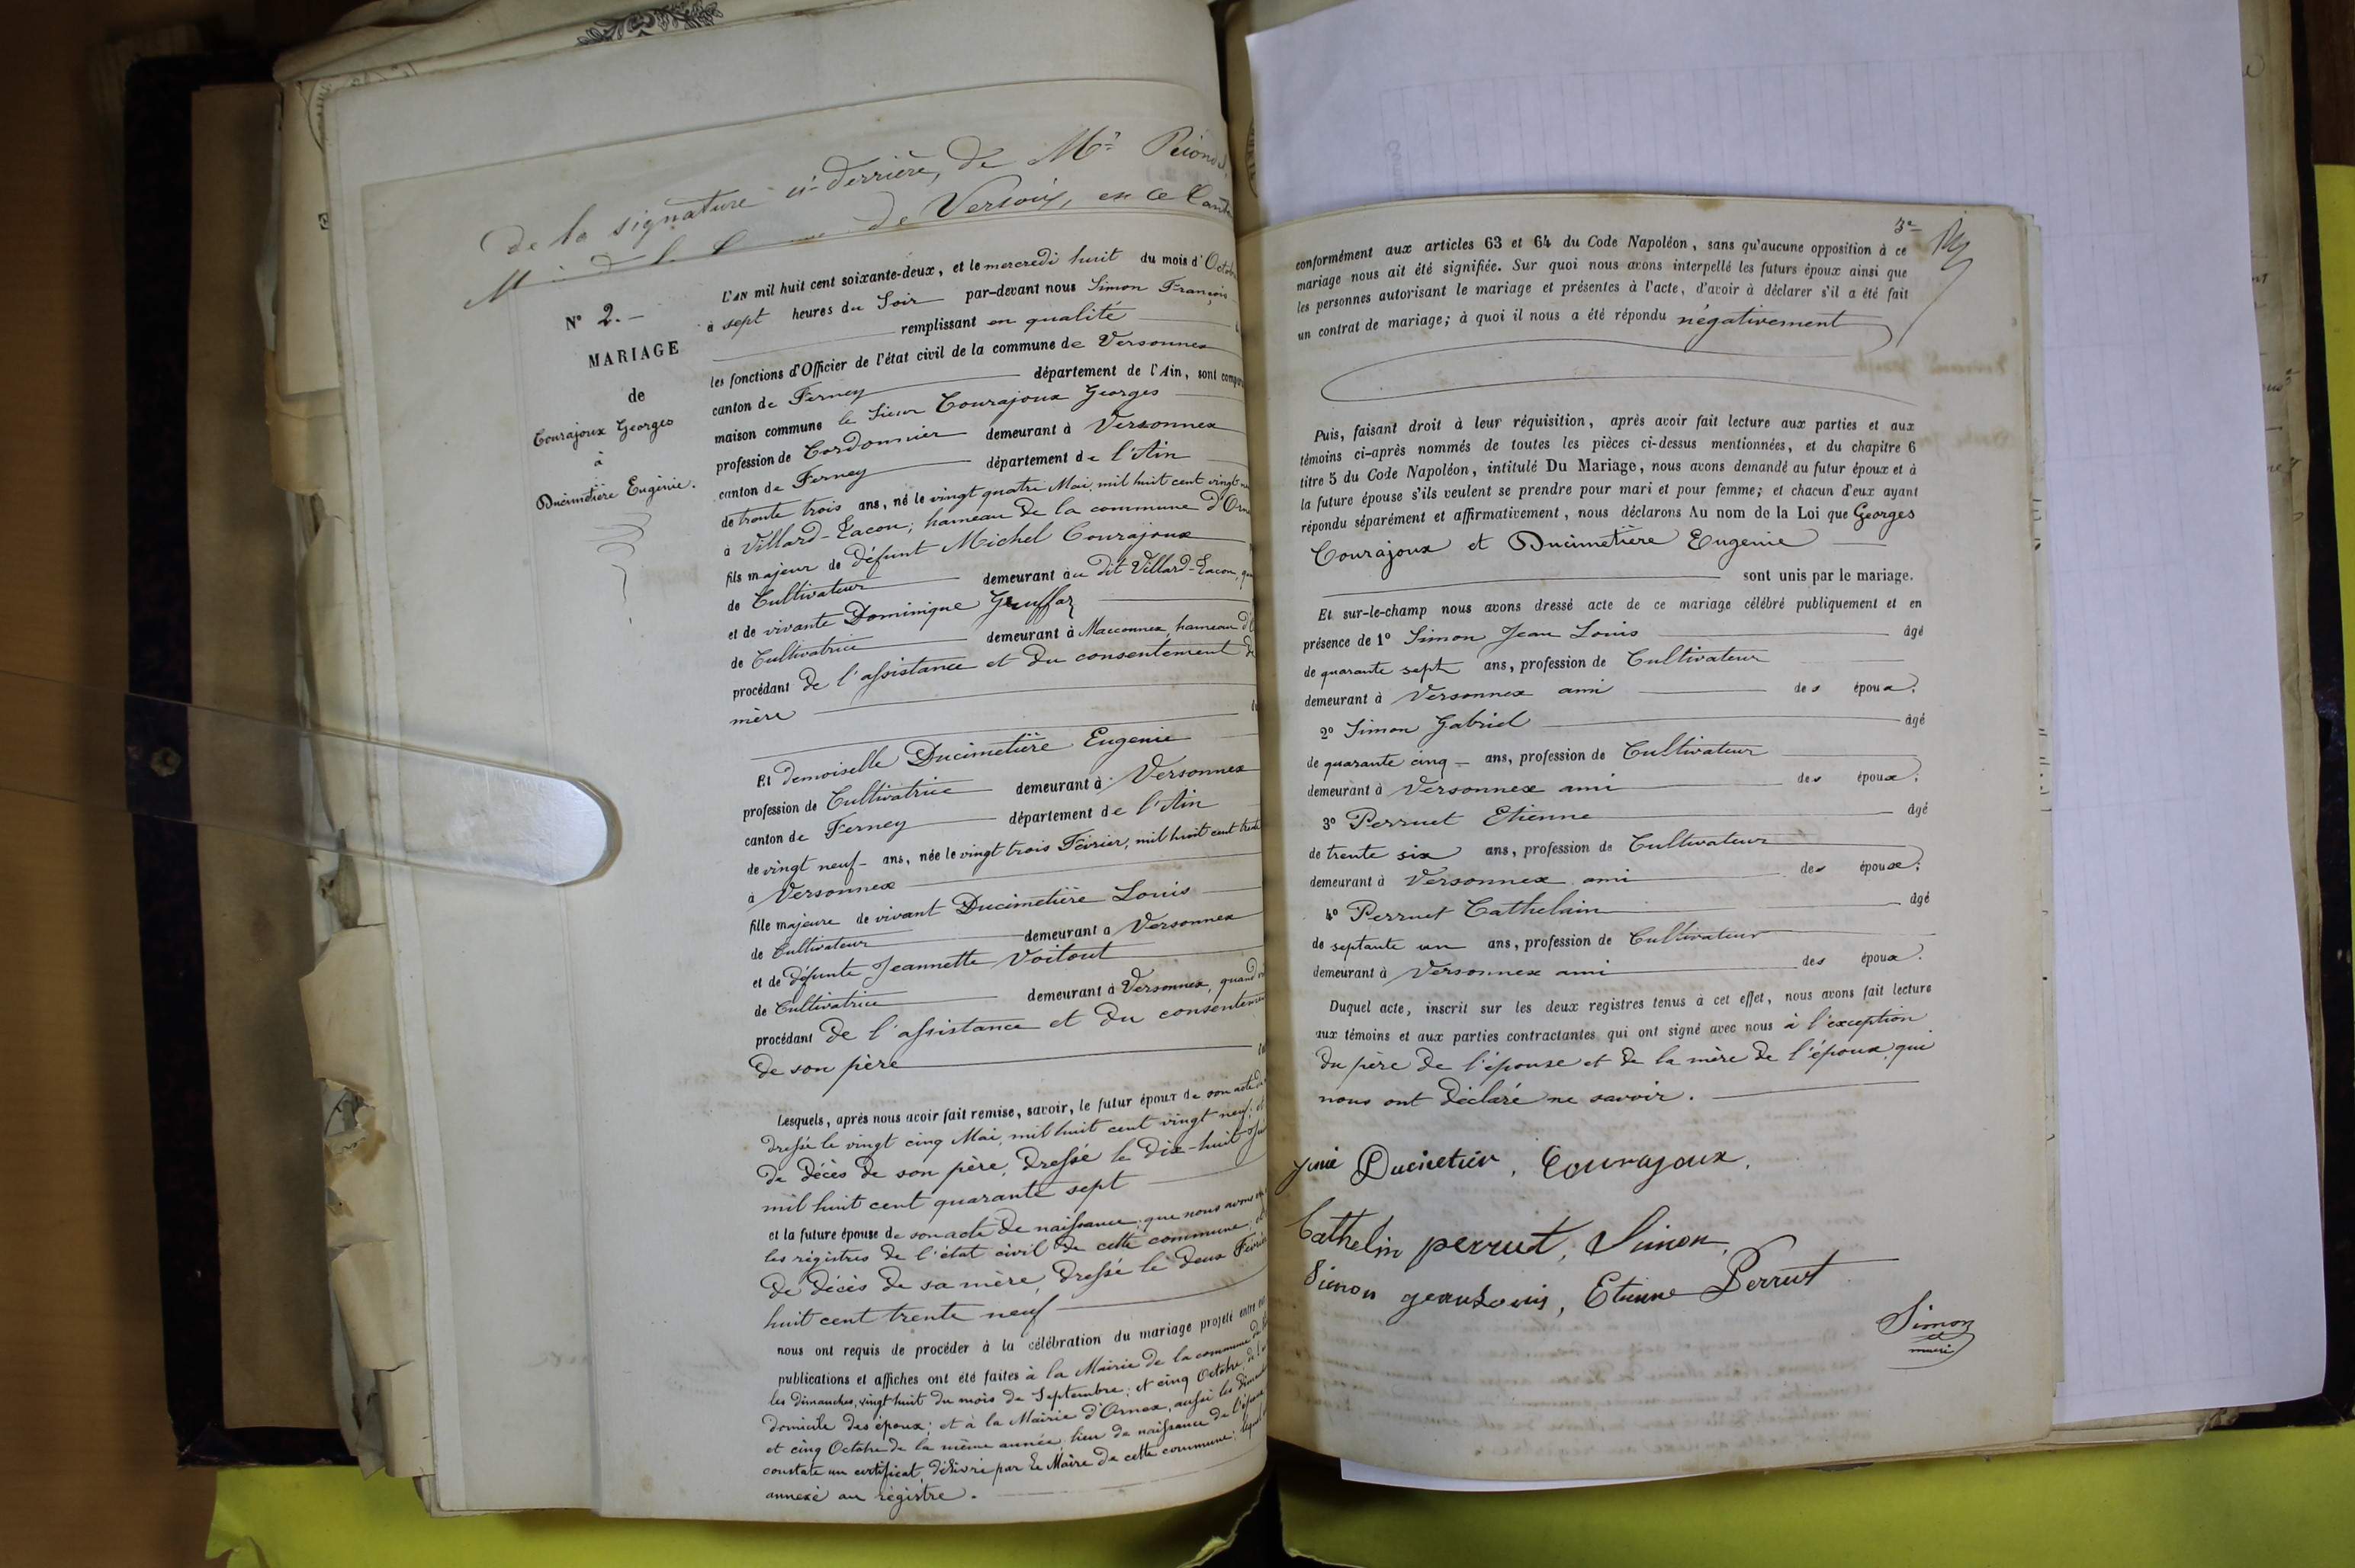 de la signature ci-derrière, de Mr
de Versoix, en ce Cant
N° 2.
MARIAGE
de
Courajoux Georges
à
Ducimetière Eugénie.
L'AN mil huit cent soixante-deux, et le mercredi huit du mois d'Octob
à sept heures du Soir par-devant nous Simon François
remplissant en qualité
les fonctions d'Officier de l'état civil de la commune de Versonnex
canton de Ferney département de l'Ain, sont compa
maison commune le Sieur Courajoux Georges
profession de Cordonnier demeurant à Versonnex
canton de Ferney département de l'Ain
de trente trois ans, né le vingt quatre Mai, mil huit cent vingt
à Villard-Tacon; hameau de la commune d'Orn
fils majeur de défunt Michel Courajoux
de Cultivateur demeurant au dit Villard-Tacon,
et de vivante Dominique
de Cultivatrice demeurant à Maconnex, hameau d'
procédant de l'assistance et du consentement de
mère
Et demoiselle Ducimetière Eugenie
profession de Cultivatrice demeurant à Versonnex
canton de Ferney département de l'Ain
de vingt neuf ans, née le vingt trois Février, mil huit cent trente
à Versonnex
fille majeure de vivant Ducimetière Louis
de Cultivateur demeurant à Versonnex
et de défunte Jeannette Voitout
de Cultivatrice demeurant à Versonnex, quand
procédant de l'assistance et du consenteme
de son père
Lesquels, après nous avoir fait remise, savoir, le futur époux de son acte de
dressé le vingt cinq Mai, mil huit cent vingt neuf; et
de décès de son père, dressé le dix-huit
mil huit cent quarante sept
et la future épouse de son acte de naissance; que nous avons
les régistres de l'état civil de cette commune; et
de décès de sa mère, dressé le deux Février
huit cent trente neuf
nous ont requis de procéder à la célébration du mariage projeté entre eux
publications et affiches ont été faites à la Mairie de la commune de
les dimanches, vingt huit du mois de Septembre; et cinq Octobre, de l'
domicile des époux; et à la Mairie d'Ornex, aussi les diman
et cinq Octobre de la même année, lieu de naissance de l'époux
constate un certificat, délivré par le Maire de cette commune; lequel
annexé au régistre.
3e
conformément aux articles 63 et 64 du Code Napoléon, sans qu'aucune opposition à ce
mariage nous ait été signifiée. Sur quoi nous avons interpellé les futurs époux ainsi que
les personnes autorisant le mariage et présentes à l'acte, d'avoir à déclarer s'il a été fait
un contrat de mariage; à quoi il nous a été répondu négativement
Puis, faisant droit à leur réquisition, après avoir fait lecture aux parties et aux
témoins ci-après nommés de toutes les pièces ci-dessus mentionnées, et du chapitre 6
titre 5 du Code Napoléon, intitulé Du Mariage, nous avons demandé au futur époux et à
la future épouse s'ils veulent se prendre pour mari et pour femme; et chacun d'eux ayant
répondu séparément et affirmativement, nous déclarons Au nom de la Loi que Georges
Courajoux et Ducimetière Eugenie
sont unis par le mariage.
Et sur-le-champ nous avons dressé acte de ce mariage célébré publiquement et en
présence de 1° Simon Jean Louis âgé
de quarante sept ans, profession de Cultivateur
demeurant à Versonnex ami des époux;
2° Simon Gabriel âgé
de quarante cinq ans, profession de Cultivateur
demeurant à Versonnex ami des époux;
3° Perruet Etienne âgé
de trente six ans, profession de Cultivateur
demeurant à Versonnex ami des époux;
4° Perruet Cathelain âgé
de septante un ans, profession de Cultivateur
demeurant à Versonnex ami des époux.
Duquel acte, inscrit sur les deux registres tenus à cet effet, nous avons fait lecture
aux témoins et aux parties contractantes qui ont signé avec nous à l'exception
du père de l'épouse et de la mère de l'époux, qui
nous ont déclaré ne savoir.
Ducietier, Courajoux,
Cathelin perrut, Simon,
Simon jeanLouis, Etienne Perrut
Simon
maire